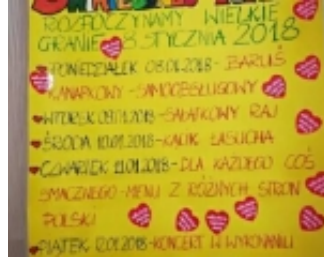 ROZPOCZYNAMY WIELKIE
GRANIE 8 STYCZNIA 2018
PONIEDZIAŁEK 08.01.2018 - BARUŚ
KANAPKOWY - SAMOOBSŁUGOWY
WTOREK 09.01.2018 - SAŁATKOWY RAJ
ŚRODA 10.01.2018 - KĄCIK ŁASUCHA
CZWARTEK 11.01.2018 - DLA KAŻDEGO COŚ
SMACZNEGO - MENU Z RÓŻNYCH STRON
POLSKI
PIĄTEK 12.01.2018 - KONCERT W WYKONANIU